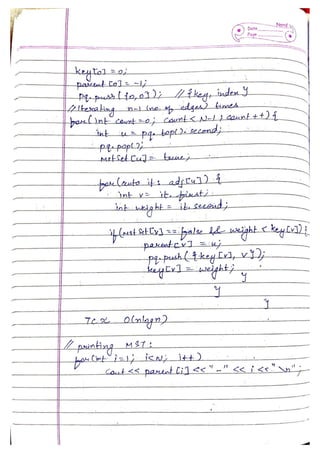 Date
Page
key[0] = 0;
parent [0] = -1;
pq.push ({0,0}); // {key, index}
// Iterating n-1 (no. of edges) times
for (int count = 0; count < N-1; count ++) {
int u = pq. top(). second;
pq.pop();
mstSet [u] = true;
for (auto it : adj[u]) {
int v = it. first;
int weight = it. second;
if (mstSet[v] == false && weight < key[v]) {
parent[v] = u;
pq.push ({key [v], v});
key[v] = weight;
}
}
}
TC x O(nlogn)
// printing MST:
for (int i=1; i<N; i++)
cout << parent [i] << "-" << i << "\n";